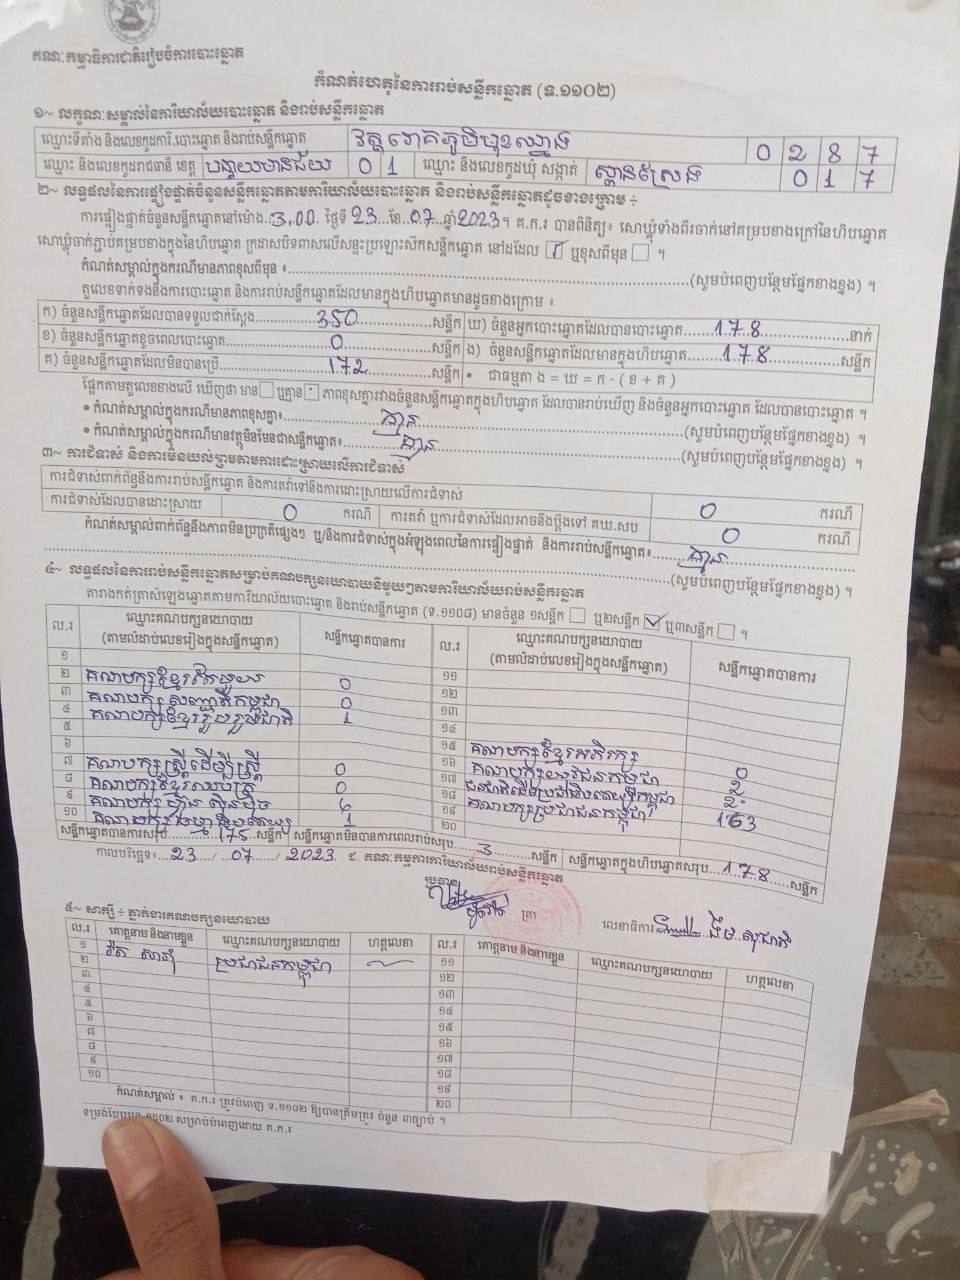 គណៈកម្មាធិការជាតិរៀបចំការបោះឆ្នោត
កំណត់ហេតុនៃការរាប់សន្លឹកឆ្នោត (ទ.១១០២)
១~ លក្ខណៈសម្គាល់នៃការិយាល័យបោះឆ្នោត និងរាប់សន្លឹកឆ្នោត
ឈ្មោះទីតាំង និងលេខកូដការិ.បោះឆ្នោត និងរាប់សន្លឹកឆ្នោត 0 2 8 7
ឈ្មោះ និងលេខកូដរាជធានី ខេត្ត បន្ទាយមានជ័យ 0 1 ឈ្មោះ និងលេខកូដឃុំ សង្កាត់ ស្ពានស្រែង 0 1 7
២~ លទ្ធផលនៃការផ្ទៀងផ្ទាត់ចំនួនសន្លឹកឆ្នោតតាមការិយាល័យបោះឆ្នោត និងរាប់សន្លឹកឆ្នោតដូចខាងក្រោម ÷
ការផ្ទៀងផ្ទាត់ចំនួនសន្លឹកឆ្នោតនៅម៉ោង..3,00. ថ្ងៃទី 23..ខែ.07..ឆ្នាំ2023។ គ.ក.រ បានពិនិត្យ៖ សោឃ្លុំទាំងពីរចាក់នៅគម្របខាងក្រៅនៃហិបឆ្នោត
សោឃ្លុំចាក់ភ្ជាប់គម្របខាងក្នុងនៃហិបឆ្នោត ក្រដាសបិទពាសលើសន្ទះប្រឡោះស៊កសន្លឹកឆ្នោត នៅដដែល ឬខុសពីមុន ។
កំណត់សម្គាល់ក្នុងករណីមានភាពខុសពីមុន ៖ (សូមបំពេញបន្ថែមផ្នែកខាងខ្នង) ។
តួលេខទាក់ទងនឹងការបោះឆ្នោត និងការរាប់សន្លឹកឆ្នោតដែលមានក្នុងហិបឆ្នោតមានដូចខាងក្រោម ៖
ក) ចំនួនសន្លឹកឆ្នោតដែលបានទទួលជាក់ស្តែង 350 សន្លឹក ឃ) ចំនួនអ្នកបោះឆ្នោតដែលបានបោះឆ្នោត 178 នាក់
ខ) ចំនួនសន្លឹកឆ្នោតខូចពេលបោះឆ្នោត 0 សន្លឹក ង) ចំនួនសន្លឹកឆ្នោតដែលមានក្នុងហិបឆ្នោត 178 សន្លឹក
គ) ចំនួនសន្លឹកឆ្នោតដែលមិនបានប្រើ 172 សន្លឹក • ជាធម្មតា ង = ឃ = ក - ( ខ + គ )
ផ្អែកតាមតួលេខខាងលើ ឃើញថា មាន ឬគ្មាន ភាពខុសគ្នារវាងចំនួនសន្លឹកឆ្នោតក្នុងហិបឆ្នោត ដែលបានរាប់ឃើញ និងចំនួនអ្នកបោះឆ្នោត ដែលបានបោះឆ្នោត ។
• កំណត់សម្គាល់ក្នុងករណីមានភាពខុសគ្នា៖ គ្មាន (សូមបំពេញបន្ថែមផ្នែកខាងខ្នង) ។
• កំណត់សម្គាល់ក្នុងករណីមានវត្ថុមិនមែនជាសន្លឹកឆ្នោត៖ គ្មាន (សូមបំពេញបន្ថែមផ្នែកខាងខ្នង) ។
៣~ ការជំទាស់ និងការមិនយល់ព្រមតាមការដោះស្រាយលើការជំទាស់
ការជំទាស់ពាក់ព័ន្ធនឹងការរាប់សន្លឹកឆ្នោត និងការតវ៉ាទៅនឹងការដោះស្រាយលើការជំទាស់ 0 ករណី
ការជំទាស់ដែលបានដោះស្រាយ 0 ករណី ការតវ៉ា ឬការជំទាស់ដែលអាចនឹងប្តឹងទៅ គឃ.សប 0 ករណី
កំណត់សម្គាល់ពាក់ព័ន្ធនឹងភាពមិនប្រក្រតីផ្សេងៗ ឬ/និងការជំទាស់ក្នុងអំឡុងពេលនៃការផ្ទៀងផ្ទាត់ និងការរាប់សន្លឹកឆ្នោត៖ គ្មាន
(សូមបំពេញបន្ថែមផ្នែកខាងខ្នង) ។
៤~ លទ្ធផលនៃការរាប់សន្លឹកឆ្នោតសម្រាប់គណបក្សនយោបាយនីមួយៗតាមការិយាល័យរាប់សន្លឹកឆ្នោត
តារាងកត់ត្រាសំឡេងឆ្នោតតាមការិយាល័យបោះឆ្នោត និងរាប់សន្លឹកឆ្នោត (ទ.១១០៨) មានចំនួន ១សន្លឹក ឬ២សន្លឹក ឬ៣សន្លឹក ។
ល.រ ឈ្មោះគណបក្សនយោបាយ (តាមលំដាប់លេខរៀងក្នុងសន្លឹកឆ្នោត) សន្លឹកឆ្នោតបានការ ល.រ ឈ្មោះគណបក្សនយោបាយ (តាមលំដាប់លេខរៀងក្នុងសន្លឹកឆ្នោត) សន្លឹកឆ្នោតបានការ
១ ១១
២ គណបក្សខ្មែរ 0 ១២
៣ គណបក្សសញ្ជាតិកម្ពុជា 0 ១៣
៤ គណបក្សខ្មែររួបរួមជាតិ 1 ១៤
៥ ១៥ គណបក្សខ្មែរអភិរក្ស 0
៦ ១៦ គណបក្សយុវជនកម្ពុជា 2
៧ គណបក្សស្ត្រីដើម្បីស្ត្រី 0 ១៧ ជនជាតិដើមប្រជាធិបតេយ្យកម្ពុជា 2
៨ 0 ១៨ គណបក្សប្រជាជនកម្ពុជា 163
៩ គណបក្សហ៊្វុនស៊ិនប៉ិច 6 ១៩
១០ គណបក្សធម្មាធិបតេយ្យ 1 ២០
សន្លឹកឆ្នោតបានការសរុប 175 សន្លឹក សន្លឹកឆ្នោតមិនបានការពេលរាប់សរុប 3 សន្លឹក សន្លឹកឆ្នោតក្នុងហិបឆ្នោតសរុប 178 សន្លឹក
កាលបរិច្ឆេទ៖ 23 / 07 / 2023 ជ. គណៈកម្មការការិយាល័យរាប់សន្លឹកឆ្នោត
ប្រធាន
ត្រា លេខាធិការ
៥~ សាក្សី ÷ ភ្នាក់ងារគណបក្សនយោបាយ
ល.រ គោត្តនាម និងនាមខ្លួន ឈ្មោះគណបក្សនយោបាយ ហត្ថលេខា ល.រ គោត្តនាម និងនាមខ្លួន ឈ្មោះគណបក្សនយោបាយ ហត្ថលេខា
១ ប្រជាជនកម្ពុជា ១១
២ ១២
៣ ១៣
៤ ១៤
៥ ១៥
៦ ១៦
៧ ១៧
៨ ១៨
៩ ១៩
១០ ២០
កំណត់សម្គាល់ ៖ គ.ក.រ ត្រូវបំពេញ ទ.១១០២ ឱ្យបានត្រឹមត្រូវ ចំនួន ៣ច្បាប់ ។
ទម្រង់បែបបទ ១១០២ សម្រាប់បំពេញដោយ គ.ក.រ